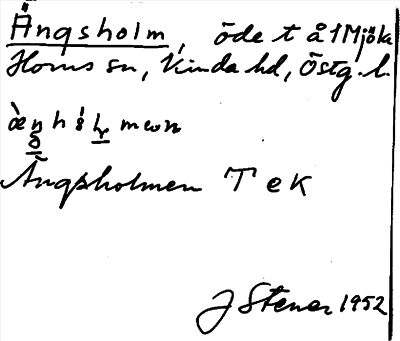 Ängsholm, öde t å 1 Mjöka
Horns sn, Kinda hd, Östg. l.
Ängsholmen T e K
J Stener 1952